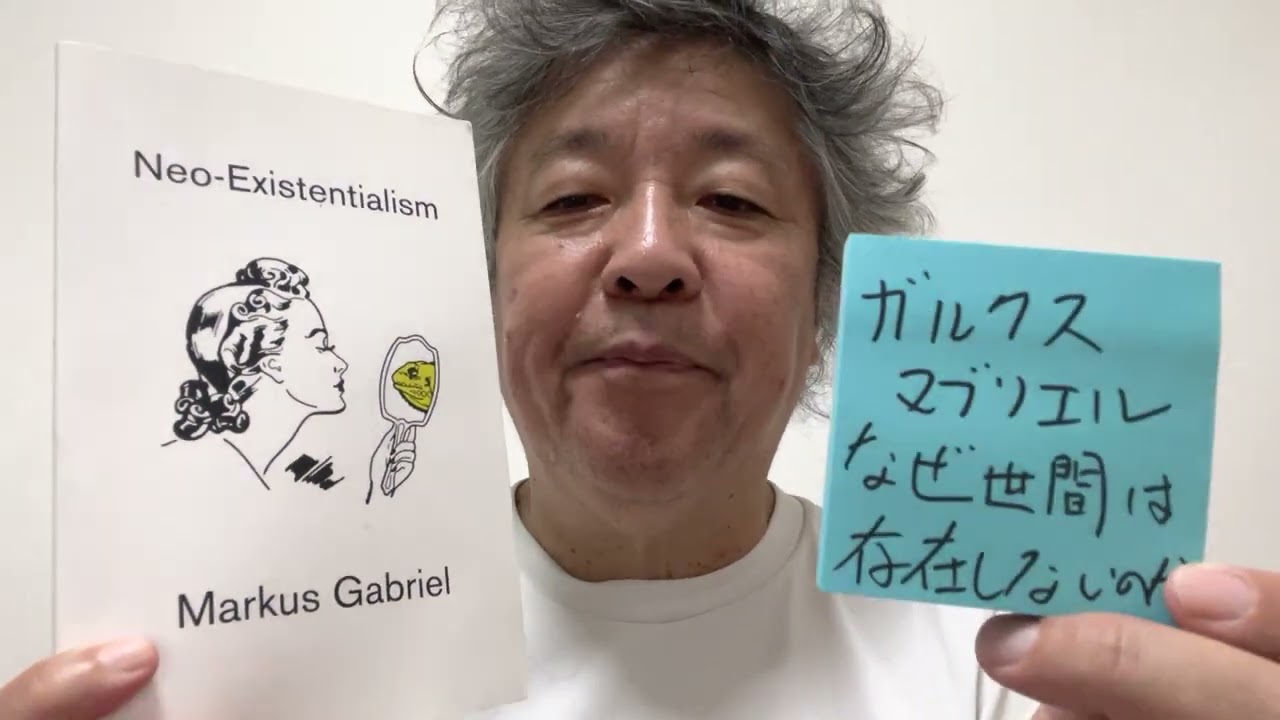 Neo-Existentialism
Markus Gabriel
ガルクス
マブリエル
なぜ世間は
存在しないのか